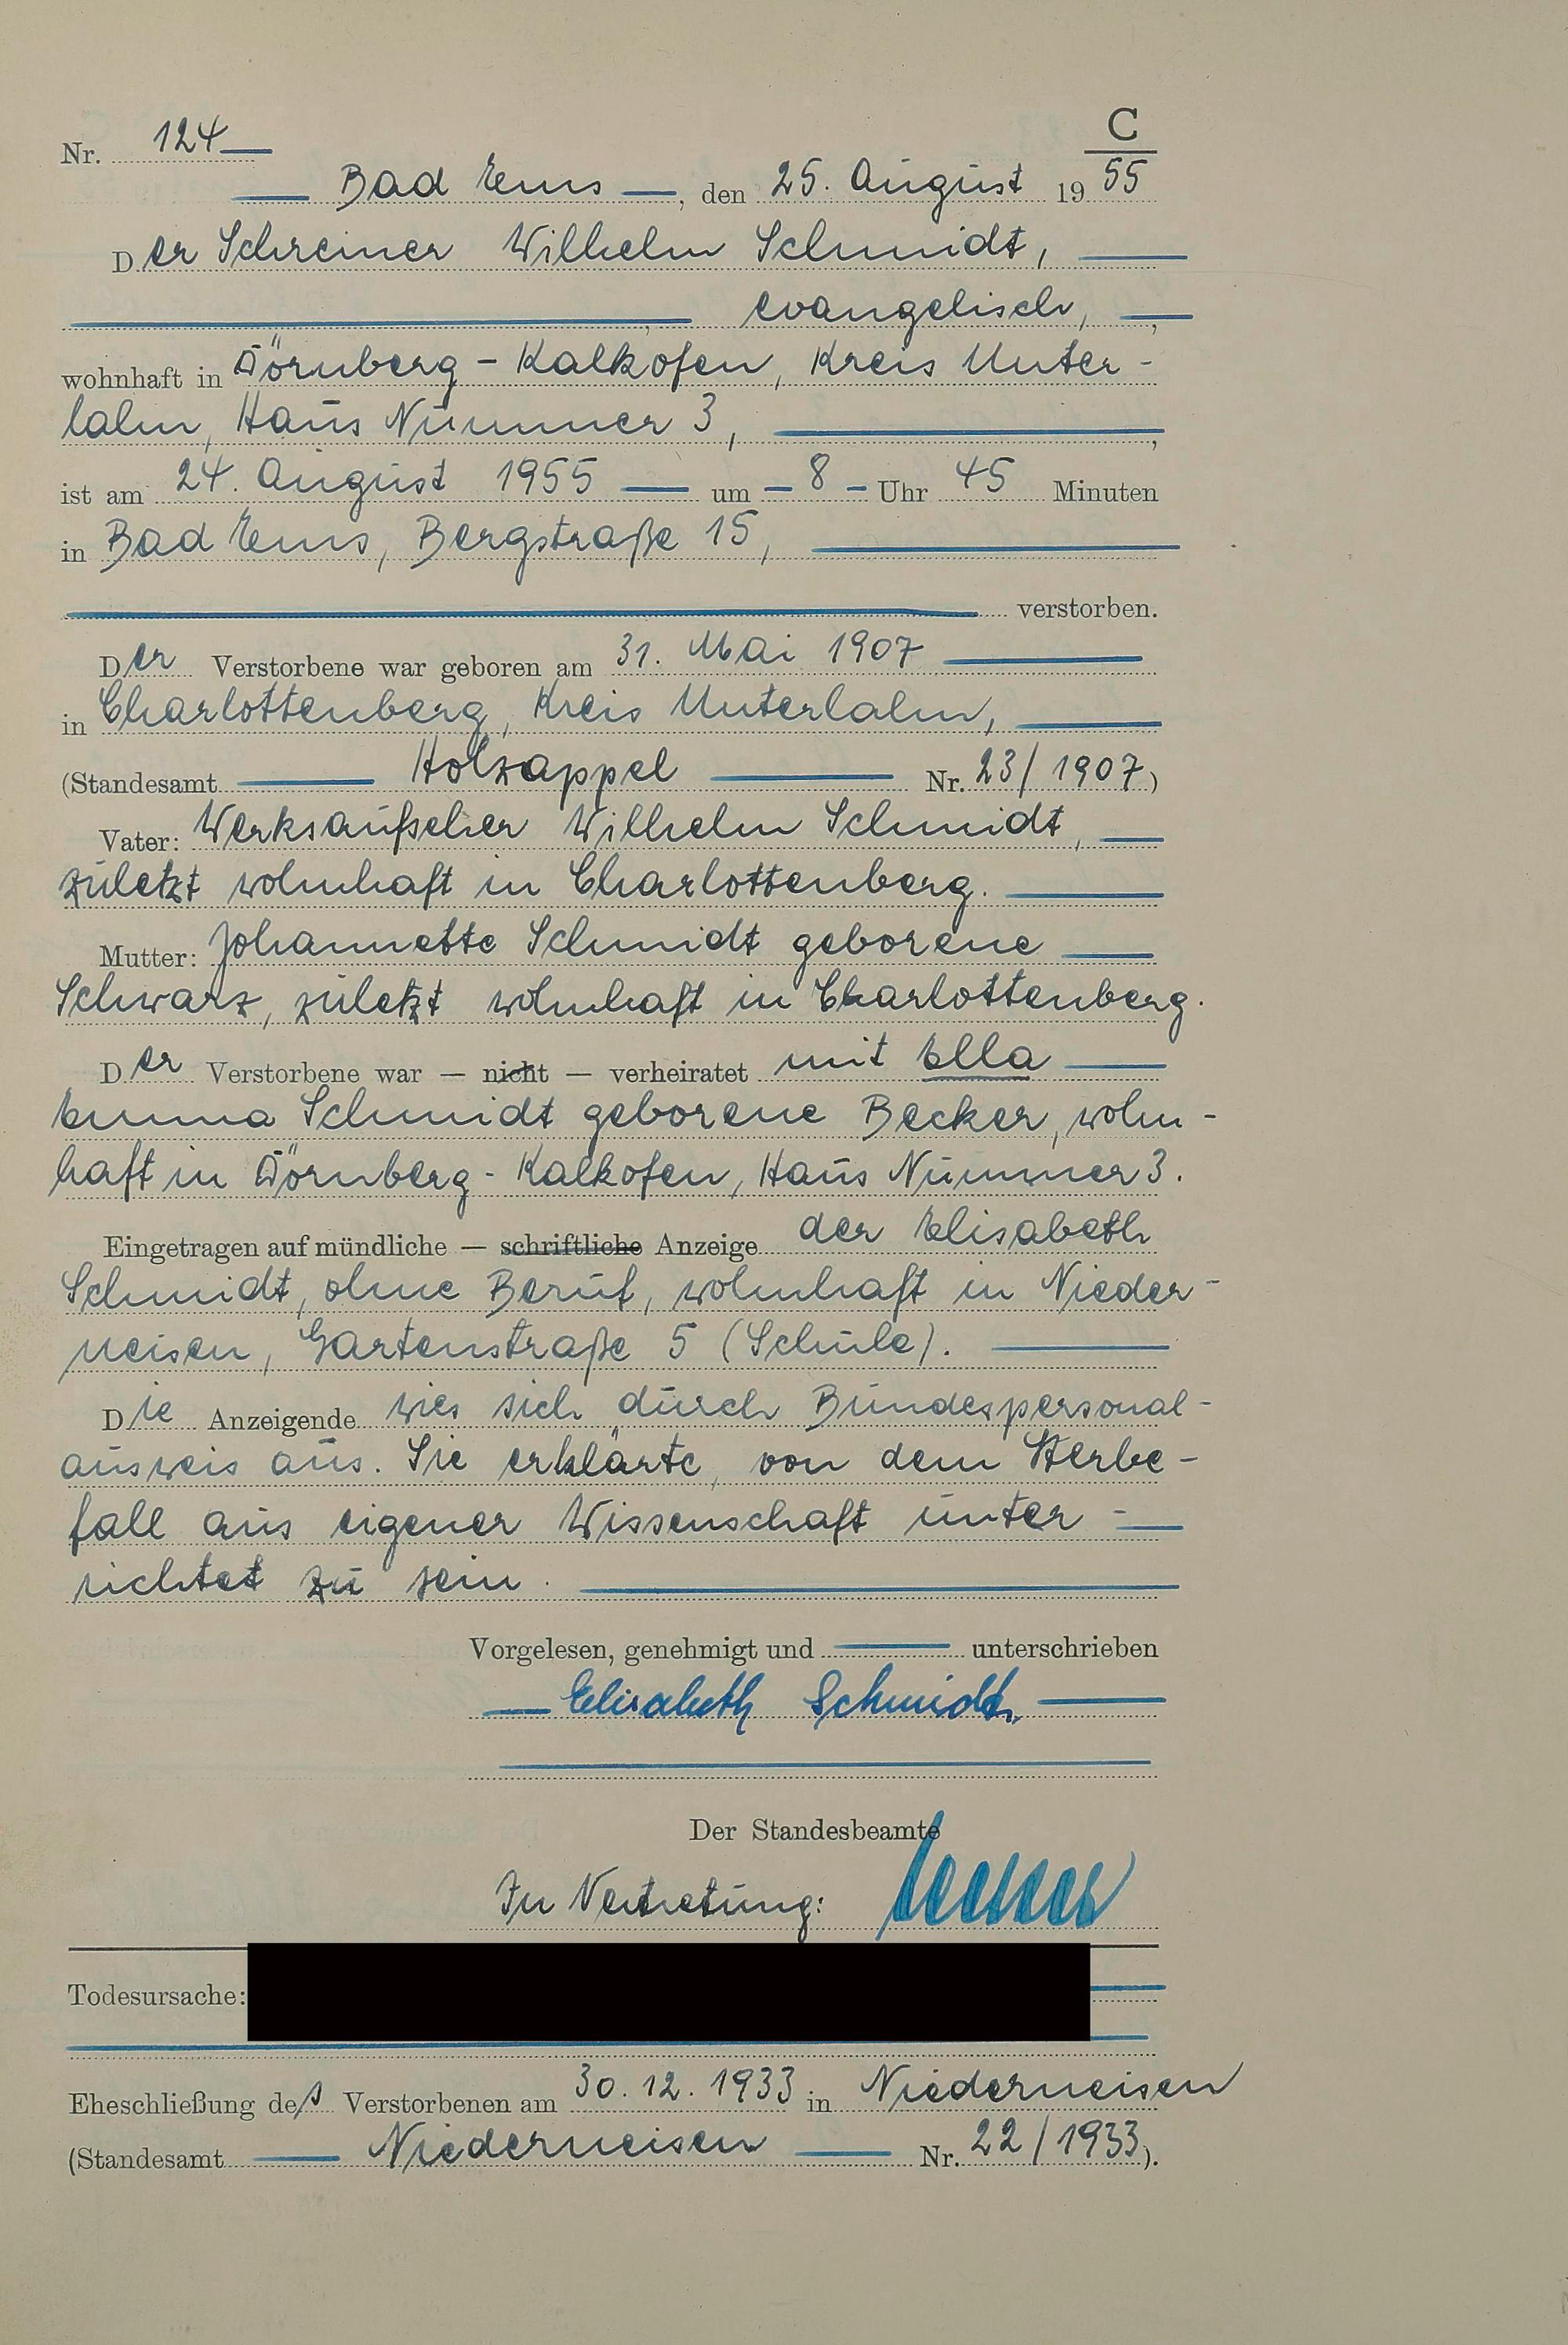 C
Nr. 124
Bad Ems, den 25. August 1955
Der Schreiner Wilhelm Schmidt,
evangelisch,
wohnhaft in Dörnberg-Kalkofen, Kreis Unter-
lahn, Haus Nummer 3,
ist am 24. August 1955 um 8 Uhr 45 Minuten
in Bad Ems, Bergstraße 15,
verstorben.
Der Verstorbene war geboren am 31. Mai 1907
in Charlottenberg, Kreis Unterlahn,
(Standesamt Holzappel Nr. 23/1907)
Vater: Werksaufseher Wilhelm Schmidt,
zuletzt wohnhaft in Charlottenberg.
Mutter: Johannette Schmidt geborene
Schwarz, zuletzt wohnhaft in Charlottenberg.
Der Verstorbene war — nicht — verheiratet mit Ella
Emma Schmidt geborene Becker, wohn-
haft in Dörnberg-Kalkofen, Haus Nummer 3.
Eingetragen auf mündliche — schriftliche Anzeige der Elisabeth
Schmidt, ohne Beruf, wohnhaft in Nieder-
neisen, Gartenstraße 5 (Schule).
Die Anzeigende wies sich durch Bundespersonal-
ausweis aus. Sie erklärte, von dem Sterbe-
fall aus eigener Wissenschaft unter-
richtet zu sein.
Vorgelesen, genehmigt und unterschrieben
Elisabeth Schmidt
Der Standesbeamte
In Vertretung:
Todesursache:
Eheschließung des Verstorbenen am 30.12.1933 in Niederneisen
(Standesamt Niederneisen Nr. 22/1933).